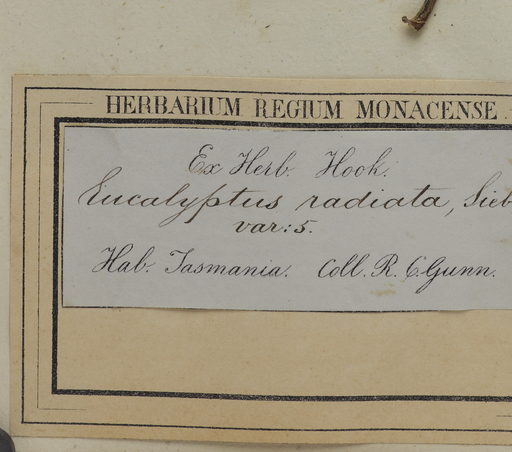 HERBARIUM REGIUM MONACENSE.
Ex Herb. Hook.
Eucalyptus radiata, Sieb
var: 5.
Hab. Tasmania. Coll. R. C. Gunn.